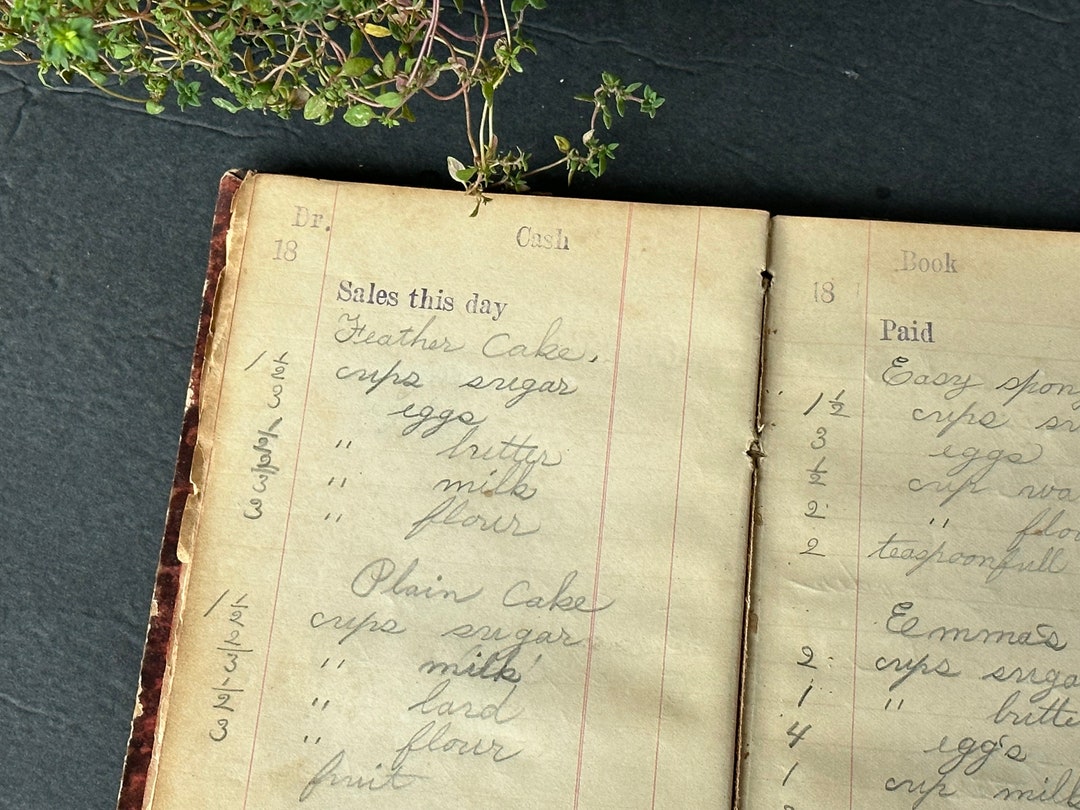 Dr. Cash
18
Sales this day
Feather Cake.
1 1/2 cups sugar
3 eggs
1/2 " butter
2/3 " milk
3 " flour
Plain Cake
1 1/2 cups sugar
2/3 " milk
1/2 " lard
3 " flour
fruit
Book
18
Paid
Easy
1 1/2 cups
3 eggs
1/2 cup
2 "
2 teaspoonfull
Emma's
2 cups
1 "
4 egg's
1 cup